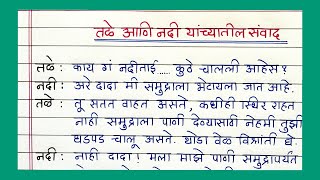 तळे आणि नदी यांच्यातील संवाद
तळे : काय गं नदीताई..... कुठे चालली आहेस?
नदी : अरे दादा मी समुद्राला भेटायला जात आहे.
तळे : तू सतत वाहत असते, कधीही स्थिर राहत
नाही समुद्राला पाणी देण्यासाठी नेहमी तुझी
धडपड चालू असते. थोडा वेळ विश्रांती घे.
नदी : नाही दादा! मला माझे पाणी समुद्रापर्यंत